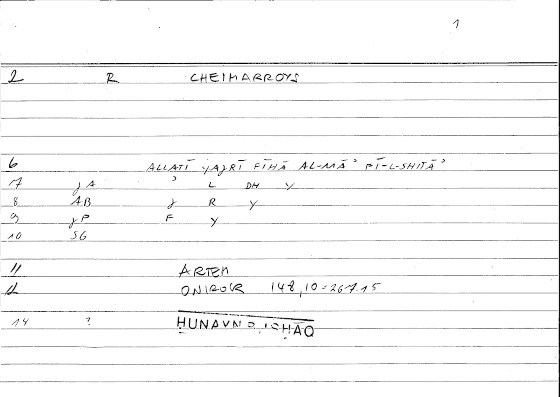 1
2 R CHEIMARROYS
6 ALLATĪ YAJRĪ FĪHĀ AL-MĀʾ FĪ-L-SHITĀʾ
7 JA ʾ L DH Y
8 AB J R Y
9 JP F Y
10 SG
11 ARTEM
12 ONIROCR 148,10 = 267.15
14 ? ḤUNAYN B. ISḤĀQ